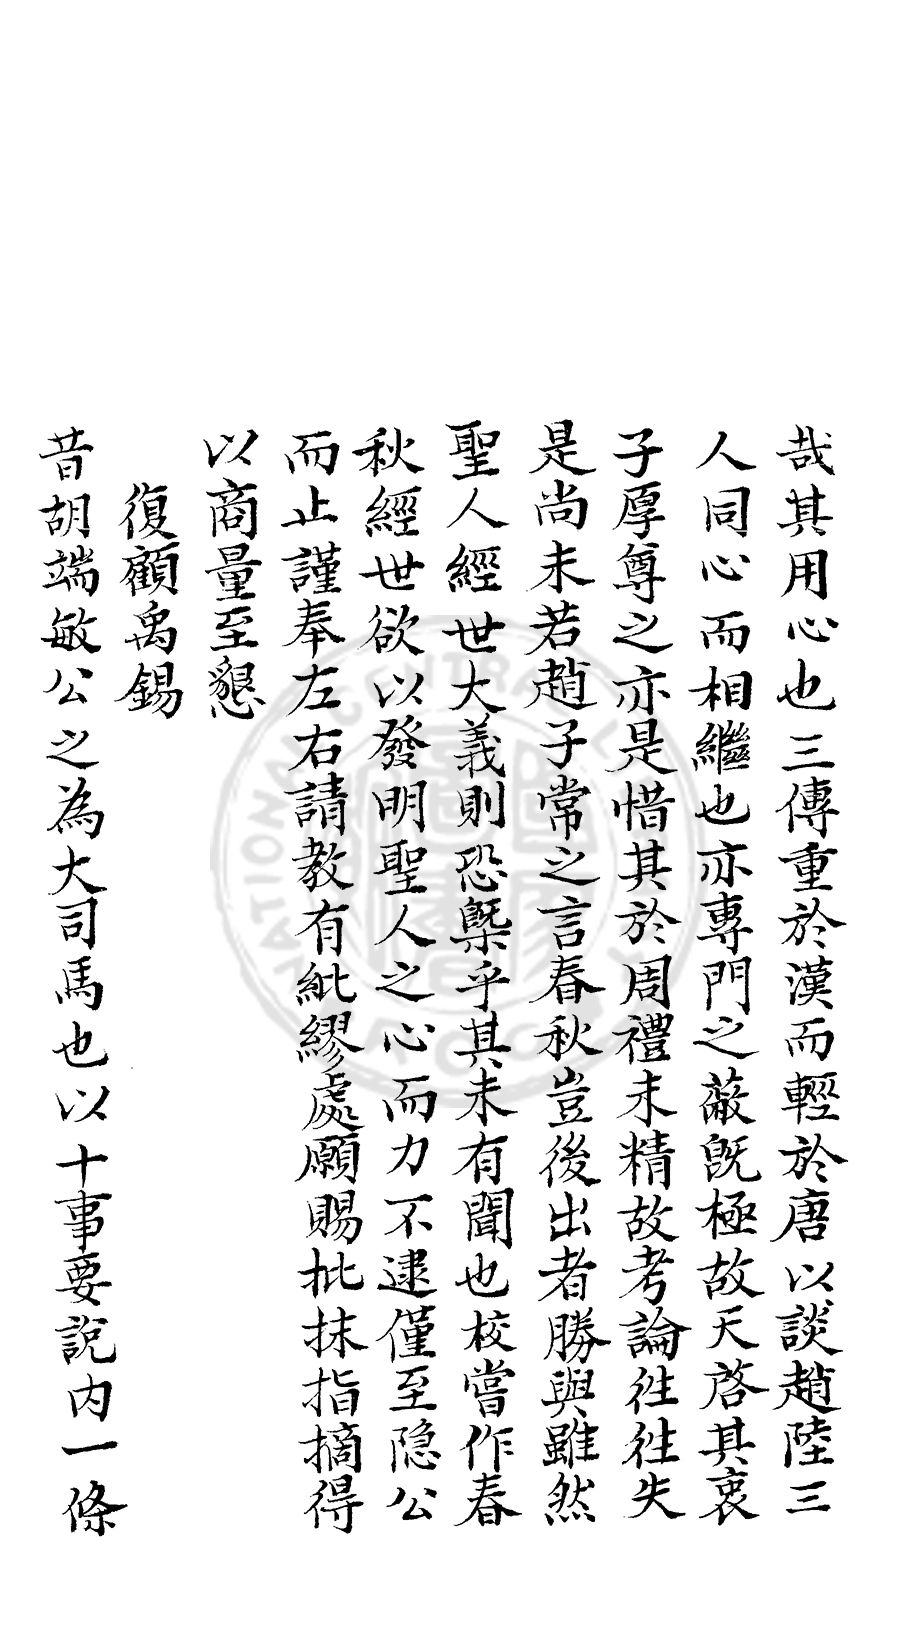 哉其用心也三傳重於漢而輕於唐以談趙陸三
人同心而相繼也亦專門之蔽旣極故天啓其衷
子厚尊之亦是惜其於周禮未精故考論往往失
是尚未若趙子常之言春秋豈後出者勝與雖然
聖人經世大義則恐槩乎其未有聞也校嘗作春
秋經世欲以發明聖人之心而力不逮僅至隱公
而止謹奉左右請教有紕繆處願賜批抹指摘得
以商量至懇
復顧禹錫
昔胡端敏公之為大司馬也以十事要說内一條
NATIONAL CENTRAL LIBRARY